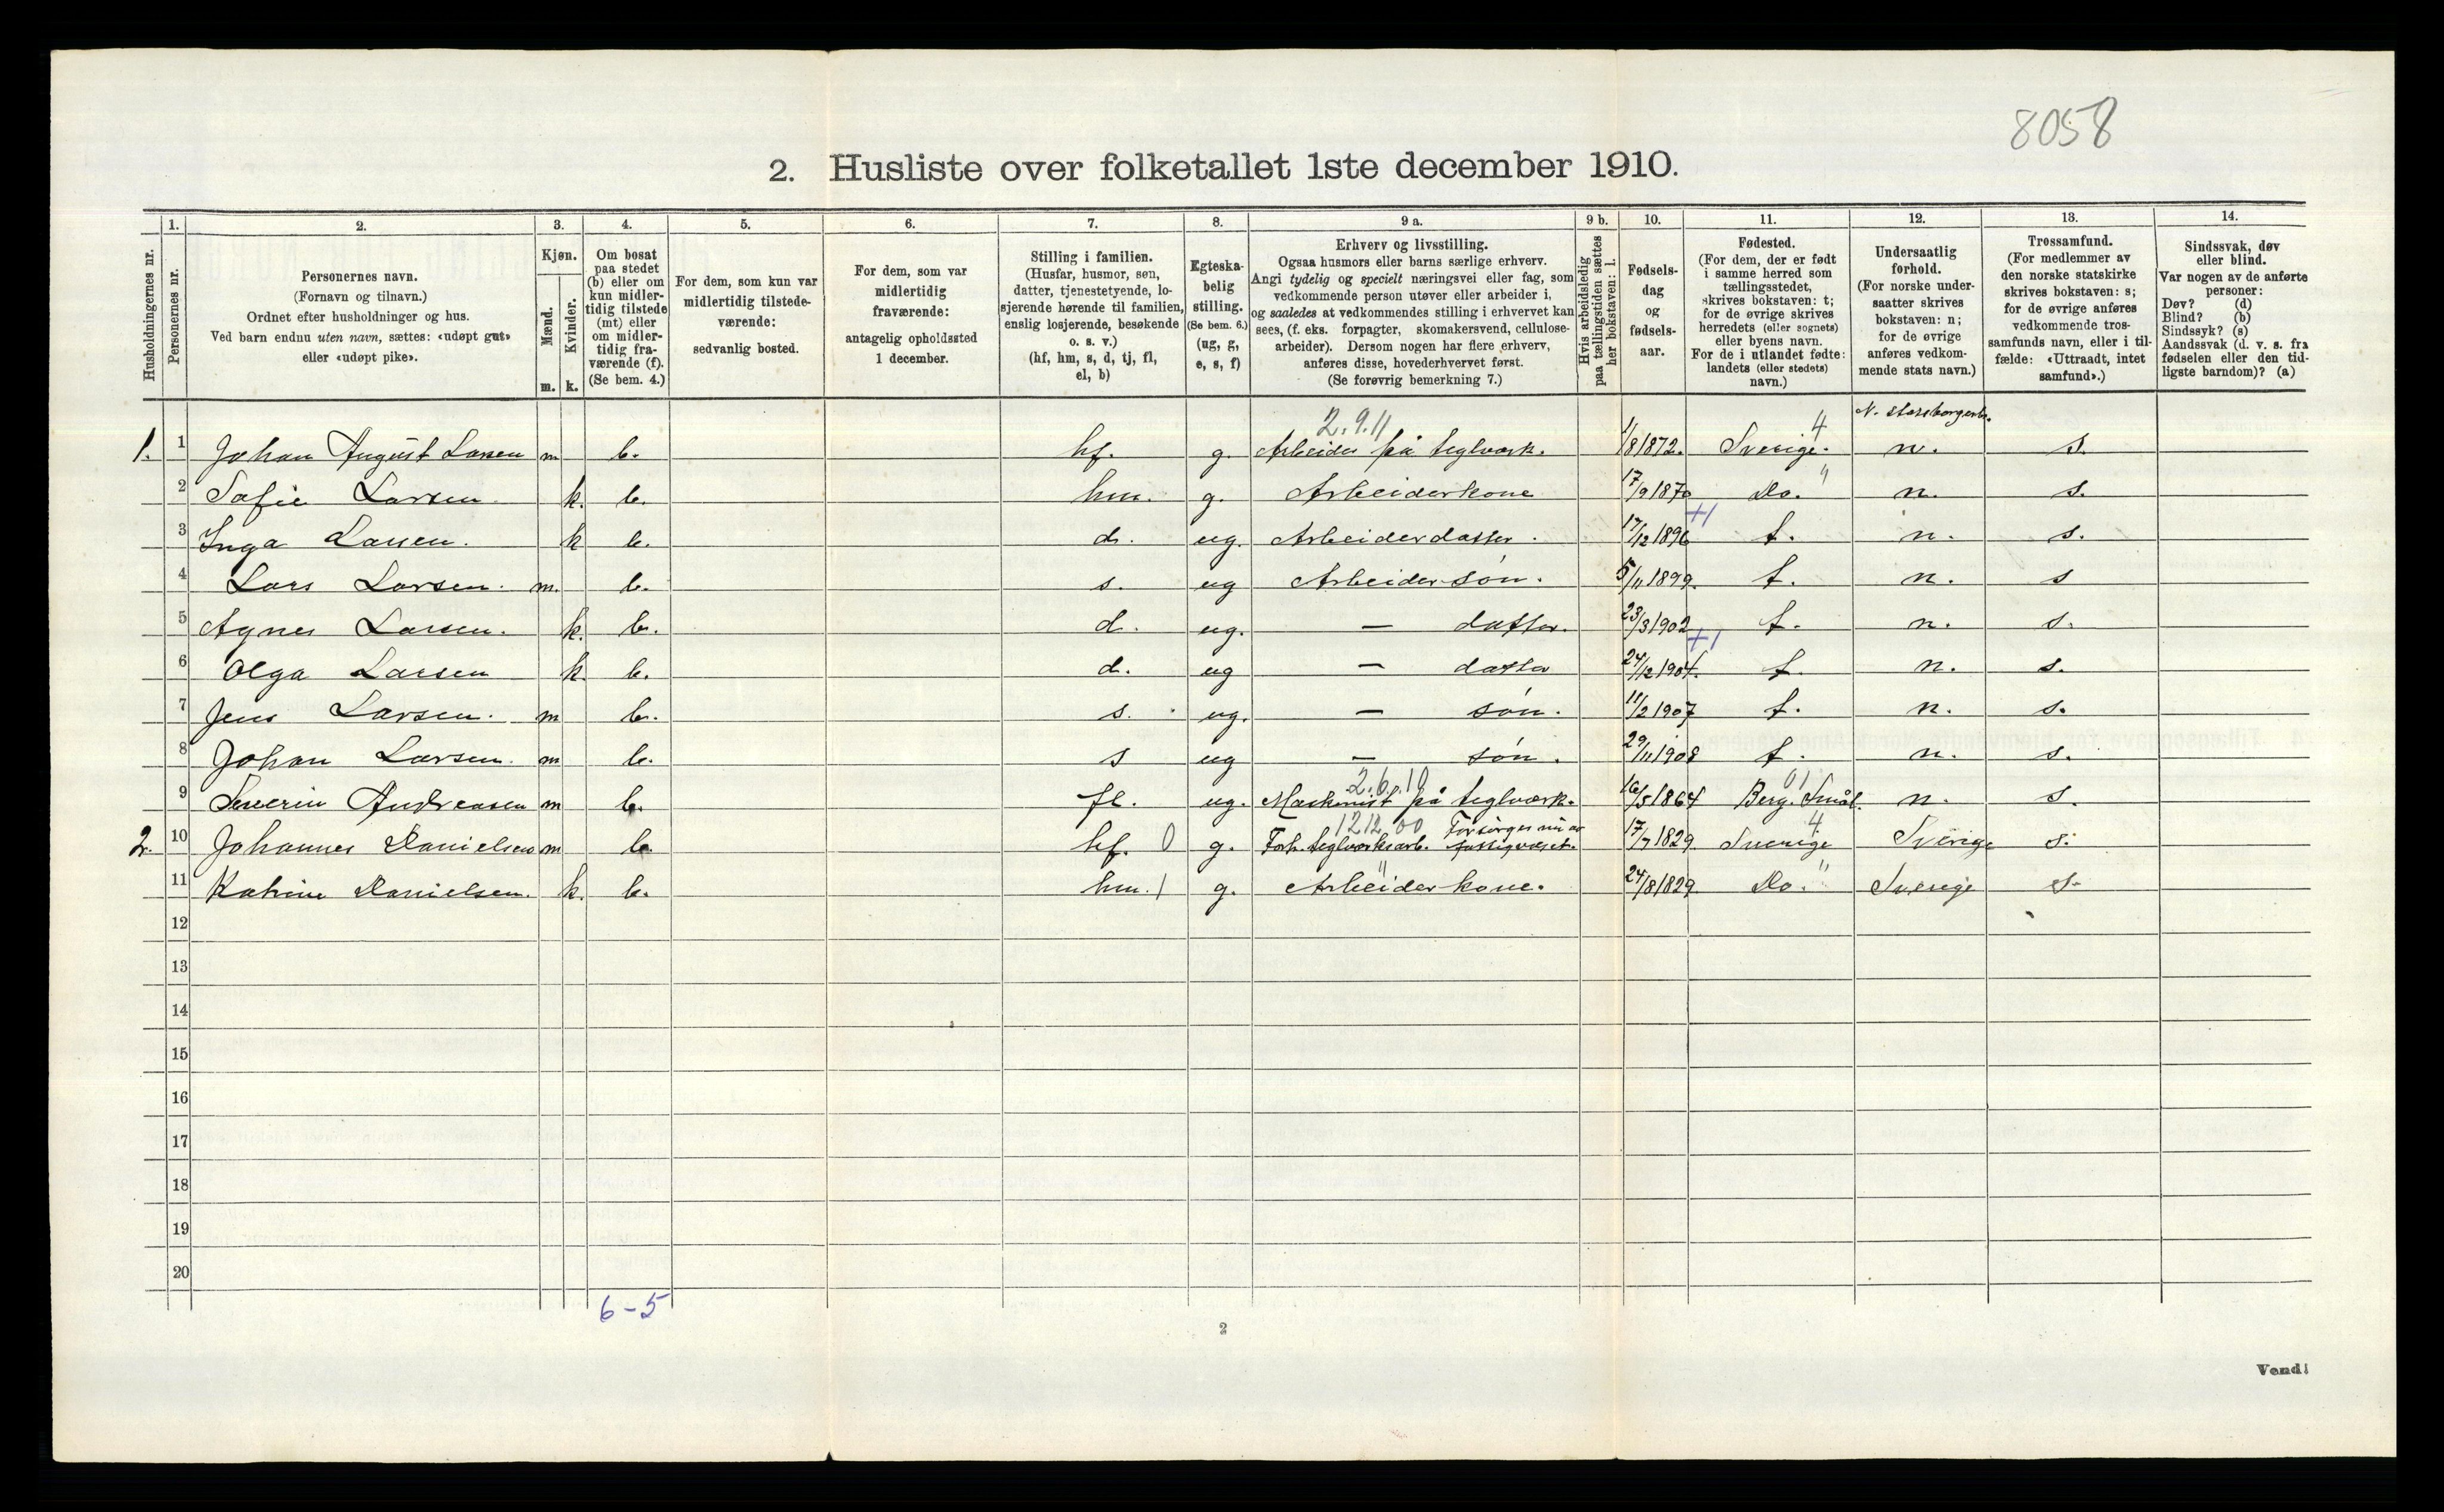 8058
2. Husliste over folketallet 1ste december 1910.
Husholdningernes nr.
1.
Personernes nr.
2.
Personernes navn.
(Fornavn og tilnavn.)
Ordnet efter husholdninger og hus.
Ved barn endnu uten navn, sættes: «udøpt gut»
eller «udøpt pike».
3.
Kjøn.
Mænd.
Kvinder.
m. k.
4.
Om bosat
paa stedet
(b) eller om
kun midler-
tidig tilstede
(mt) eller
om midler-
tidig fra-
værende (f).
(Se bem. 4.)
5.
For dem, som kun var
midlertidig tilstede-
værende:
sedvanlig bosted.
6.
For dem, som var
midlertidig
fraværende:
antagelig opholdssted
1 december.
7.
Stilling i familien.
(Husfar, husmor, søn,
datter, tjenestetyende, lo-
sjerende hørende til familien,
enslig losjerende, besøkende
o. s. v.)
(hf, hm, s, d, tj, fl,
el, b)
8.
Egteska-
belig
stilling.
(Se bem. 6.)
(ug, g,
e, s, f)
9 a.
Erhverv og livsstilling.
Ogsaa husmors eller barns særlige erhverv.
Angi tydelig og specielt næringsvei eller fag, som
vedkommende person utøver eller arbeider i,
og saaledes at vedkommendes stilling i erhvervet kan
sees, (f. eks. forpagter, skomakersvend, cellulose-
arbeider). Dersom nogen har flere erhverv,
anføres disse, hovederhvervet først.
(Se forøvrig bemerkning 7.)
9 b.
Hvis arbeidsledig
paa tællingstiden sættes
her bokstaven: l.
10.
Fødsels-
dag
og
fødsels-
aar.
11.
Fødested.
(For dem, der er født
i samme herred som
tællingsstedet,
skrives bokstaven: t;
for de øvrige skrives
herredets (eller sognets)
eller byens navn.
For de i utlandet fødte:
landets (eller stedets)
navn.)
12.
Undersaatlig
forhold.
(For norske under-
saatter skrives
bokstaven: n;
for de øvrige
anføres vedkom-
mende stats navn.)
13.
Trossamfund.
(For medlemmer av
den norske statskirke
skrives bokstaven: s;
for de øvrige anføres
vedkommende tros-
samfunds navn, eller i til-
fælde: «Uttraadt, intet
samfund».)
14.
Sindssvak, døv
eller blind.
Var nogen av de anførte
personer:
Døv? (d)
Blind? (b)
Sindssyk? (s)
Aandssvak (d. v. s. fra
fødselen eller den tid-
ligste barndom)? (a)
2.9.11 4 N. statsborgerbr.
1. 1 Johan August Larsen m b. hf. g. Arbeider på teglværk. 1/8 1872. Sverige. n. s.
2 Sofie Larsen k. b. hm. g. Arbeiderkone 17/9 1870 Do. " n. s.
+1
3 Inga Larsen. k b. d. ug. Arbeiderdatter. 17/12 1896 t. n. s.
4 Lars Larsen. m. b. s. ug Arbeidersön. 5/11 1899. t. n. s
5 Agnes Larsen. k. b. d. ug. — datter. 23/3 1902 t. n. s.
+1
6 Olga Larsen k. b. d. ug — datter 24/12 1904. t. n. s.
7 Jens Larsen. m b. s. ug. — sön. 11/2 1907 t. n. s.
8 Johan Larsen. m b. s ug — sön. 29/11 1908 t. n. s.
2.6.10 01
9 Severin Andreasen m b. fl. ug. Maskinist på teglværk. 16/5 1864 Berg. Smål. n. s.
1212 00 Forsörges nu av 4
2. 10 Johannes Danielsen m b. hf. 0 g. Forh. teglværksarb. fattigvæset. 17/7 1829. Sverige Sverige s.
11 Katrine Danielsen. k. b. hm. 1 g. Arbeiderkone. " 24/8 1829. Do. " Sverige s.
12
13
14
15
16
17
18
19
20
6-5
2
Vend!